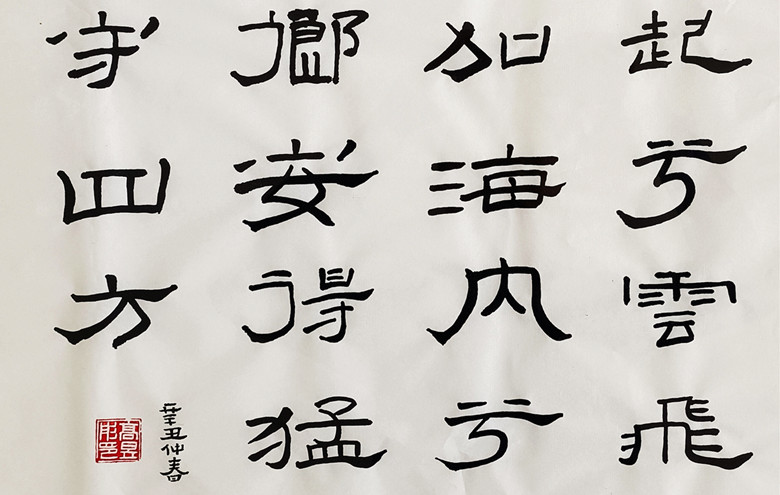 起兮雲飛
加海内兮
鄉安得猛
守四方
辛丑仲春